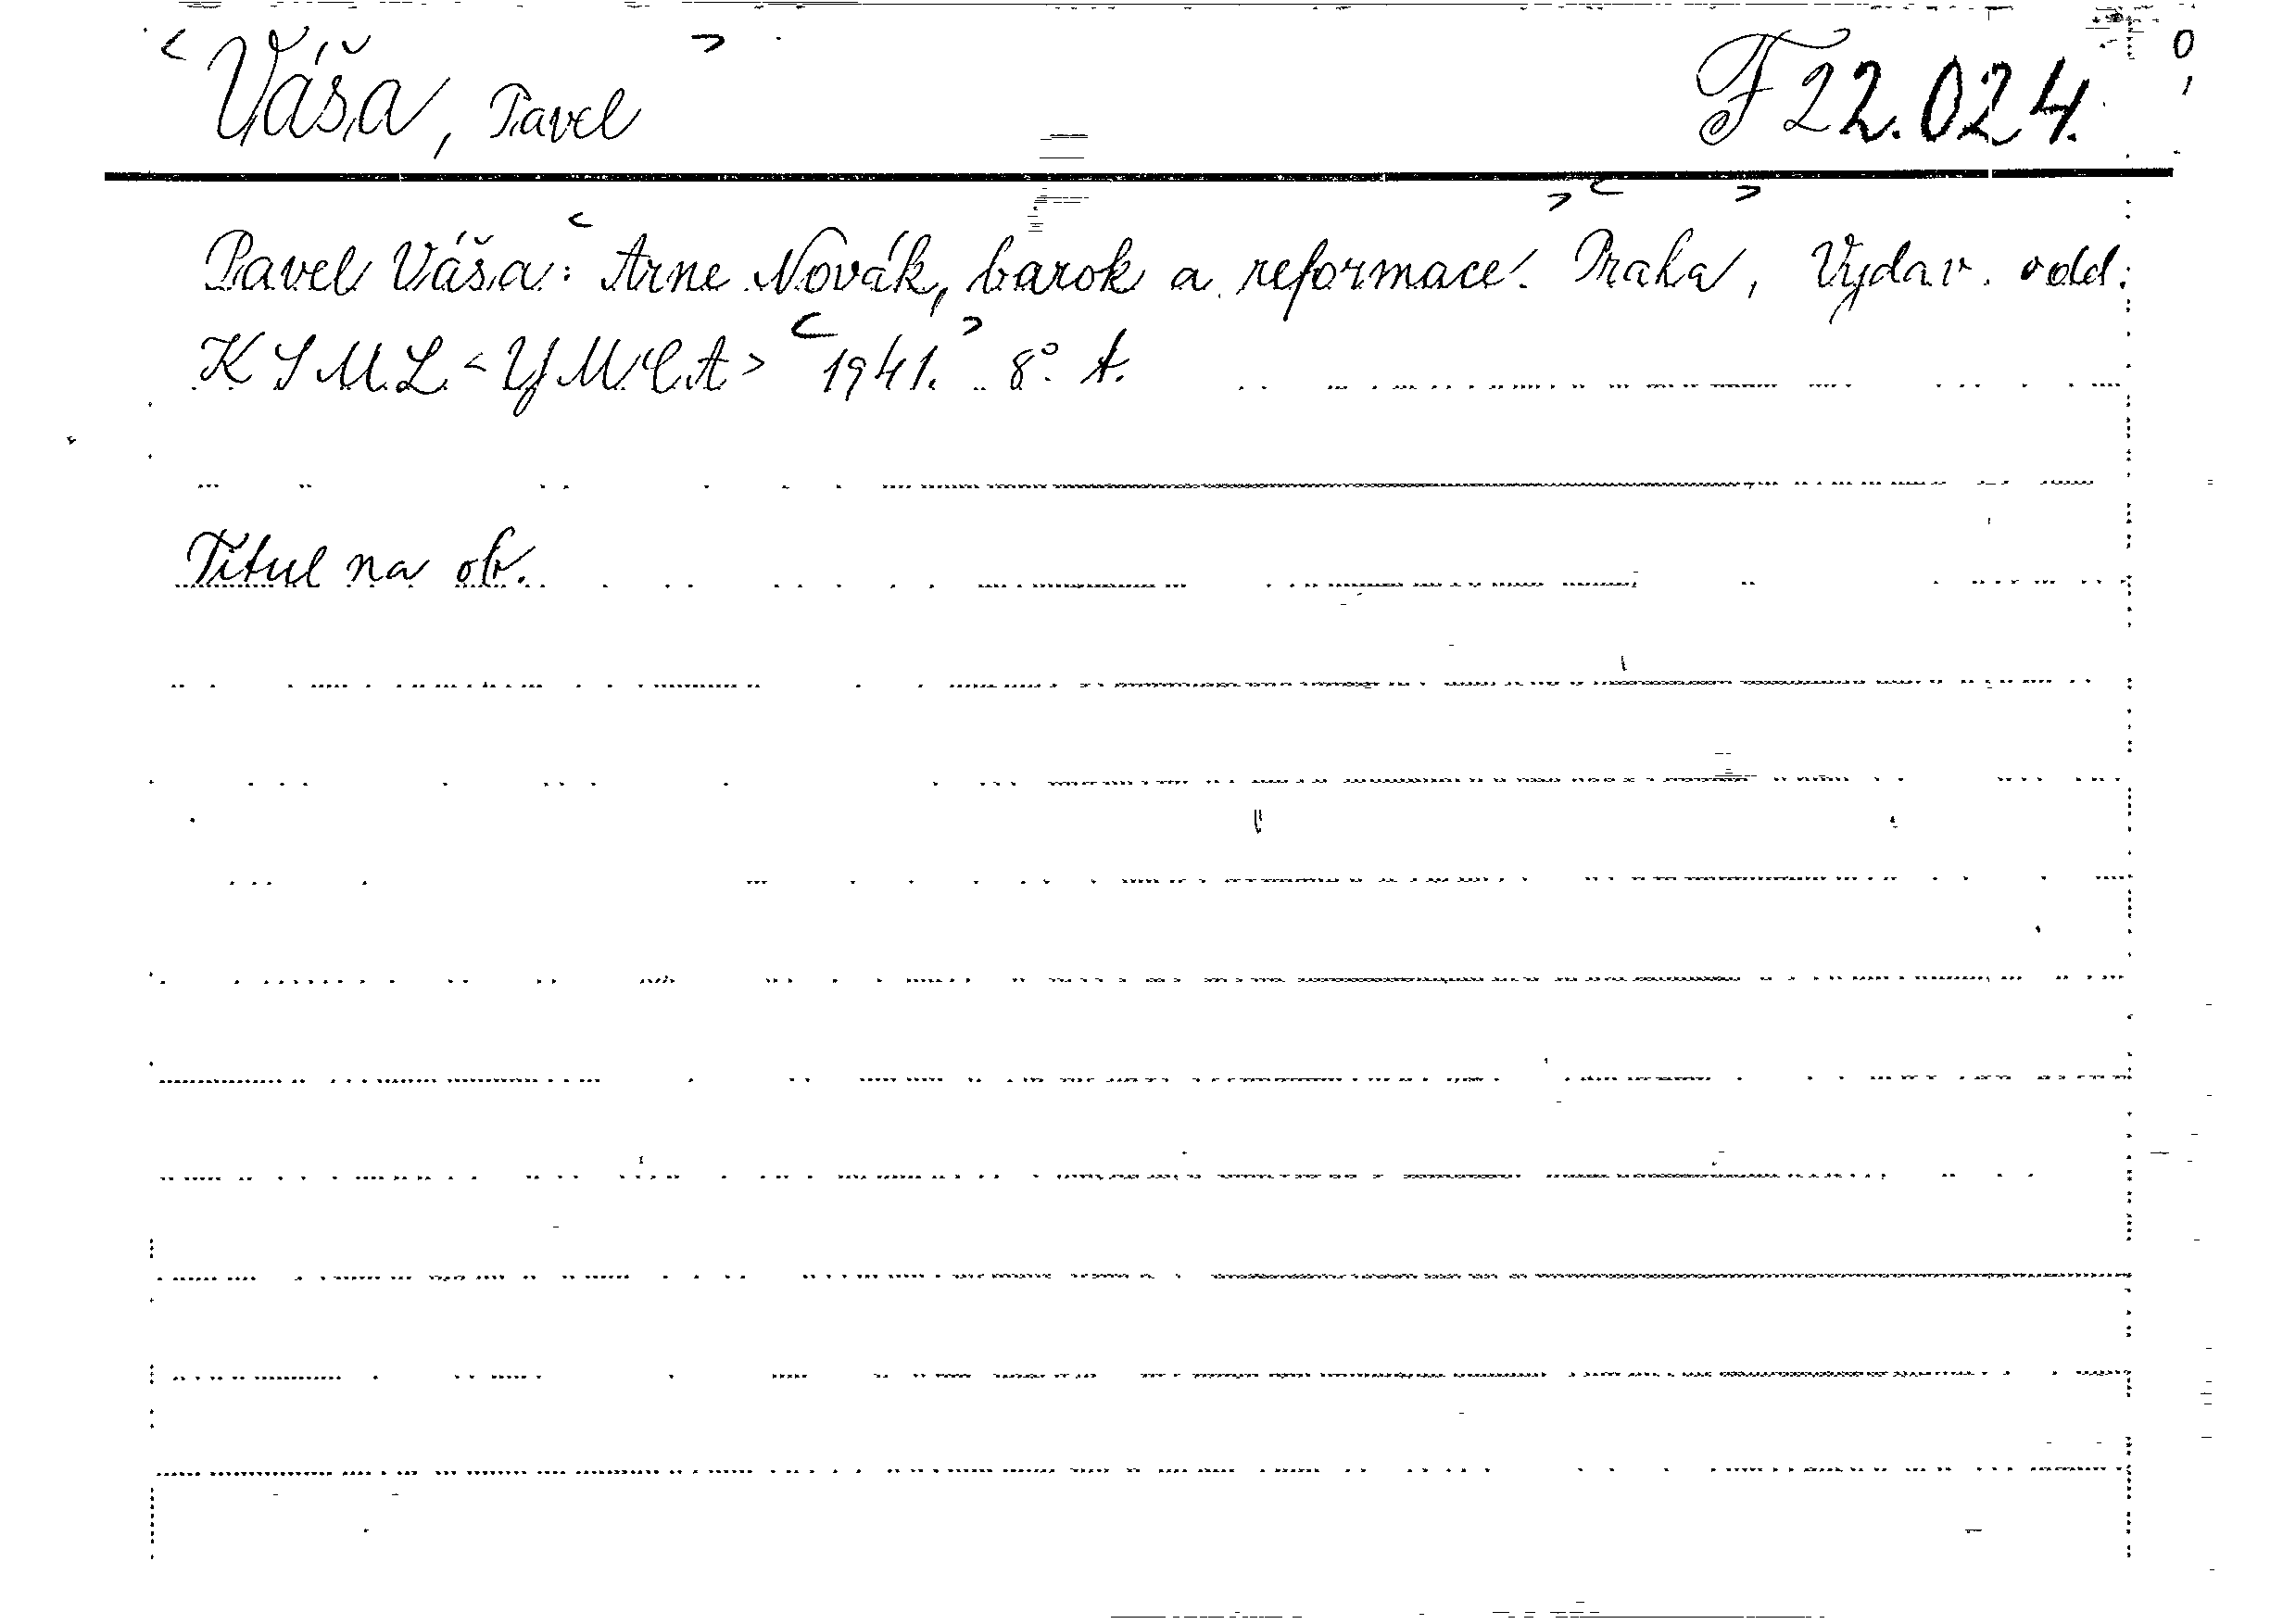 Váša, Pavel F 22.024.
Pavel Váša: Arne Novák, barok a reformace. Praha, Vydav. odd.
KSML <YMCA> 1941. 8° A.
Titul na ob.